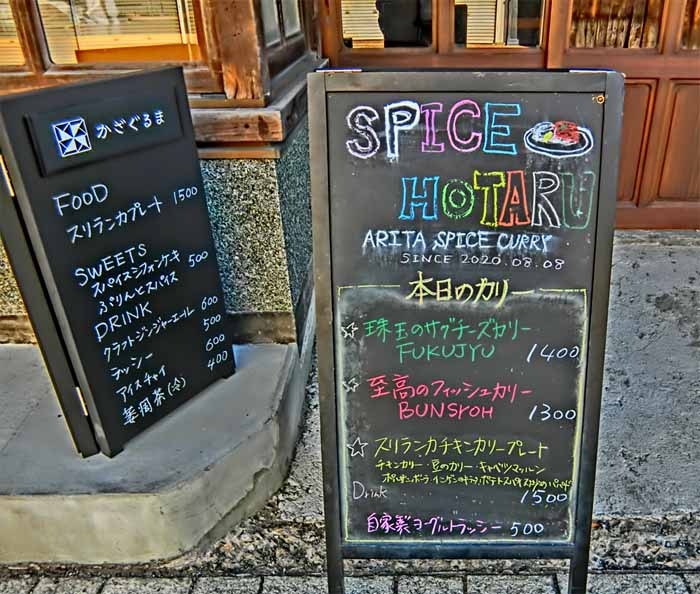 かざぐるま
FOOD
スリランカプレート 1500
SWEETS
スパイスシフォンケーキ 500
ぷりんとスパイス
DRINK
クラフトジンジャーエール 600
ラッシー 500
アイスチャイ 600
400
SPICE
HOTARU
ARITA SPICE CURRY
SINCE 2020.08.08
本日のカリー
☆ 珠玉のサグチーズカリー
FUKUJYU 1400
☆ 至高のフィッシュカリー
BUNSYOH 1300
☆ スリランカチキンカリープレート
チキンカリー・豆のカリー・キャベツマッルン
1500
Drink
自家製ヨーグルトラッシー 500